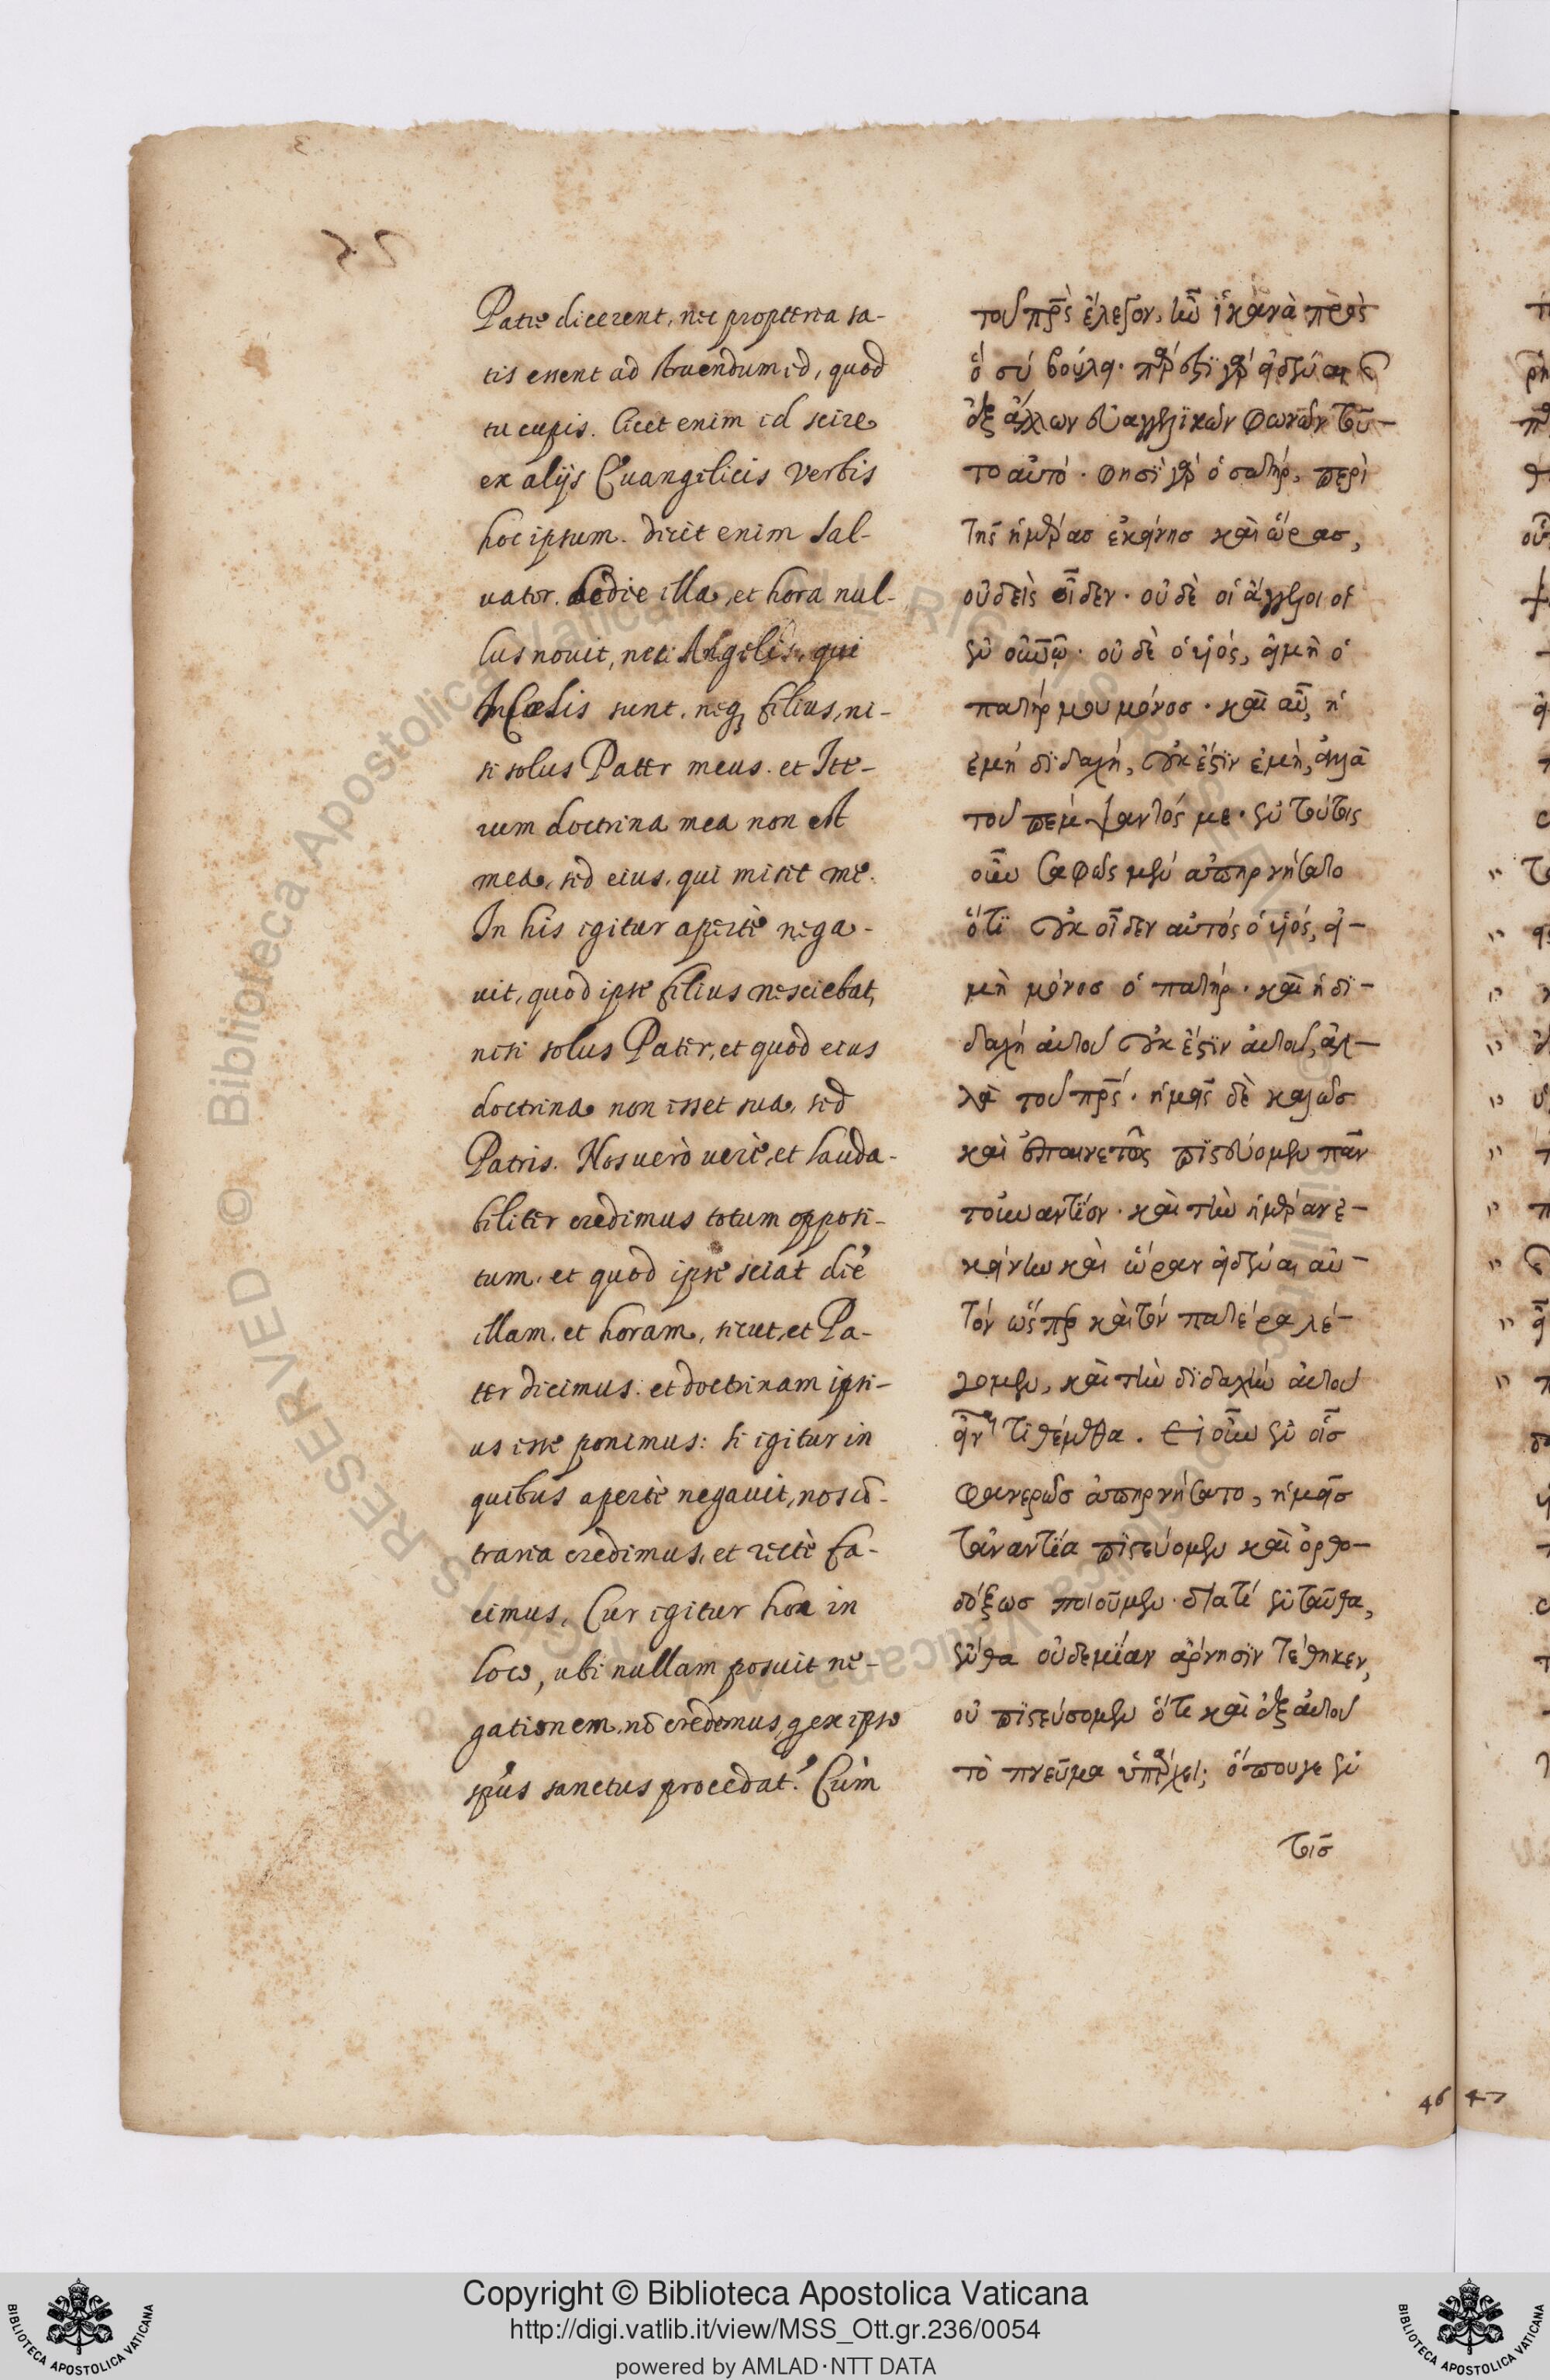 Patre dicerent, nec propterea sa-
tis essent ad struendum id, quod
tu cupis. licet enim id scire
ex alijs Euangelicis verbis
hoc ipsum. dicit enim Sal-
uator. de die illa, et hora nul-
lus nouit, nec Angeli, qui
in Cœlis sunt, neq, filius, ni-
si solus Pater meus. et Ite-
rum doctrina mea non est
mea, sed eius, qui misit me.
In his igitur apertè nega-
uit, quod ipse filius nesciebat,
nisi solus Pater, et quod eius
doctrina non esset sua, sed
Patris. Nos uerò uerè, et lauda-
biliter credimus totum opposi-
tum. et quod ipse sciat diē
illam, et horam, sicut, et Pa-
ter dicimus: et doctrinam ipsi-
us esse ponimus: si igitur in
quibus apertè negauit, nos cō-
traria credimus, et rectè fa-
cimus, Cur igitur hoc in
loco, ubi nullam posuit ne-
gationem, nō credemus, q ex ipso
spūs sanctus procedat? Cùm
τοῦ πρ̅ς ἔλεγον, ἦν ἱκανὰ πρὸς
ὃ σύ βούλει. πάρεστι γὰρ εἰδέναι
ἐξ ἄλλων εὐαγγελικῶν φωνῶν τοῦ-
το αὐτό. φησὶ γὰρ ὁ σωτήρ, περὶ
τῆς ἡμέρας ἐκείνης καὶ ὥρας,
οὐδεὶς οἶδεν. οὐδὲ οἱ ἄγγελοι οἱ
ἐν οὐνῷ. οὐδὲ ὁ υἱός, εἰμὴ ὁ
πατήρ μου μόνος. καὶ αὖ, ἡ
ἐμή διδαχή, οὐκ ἔστιν ἐμή, ἀλλὰ
τοῦ πέμψαντός με. ἐν τούτοις
οὖν σαφῶς μὲν ἀπηρνήσατο
ὅτι οὐκ οἶδεν αὐτός ὁ υἱός, εἰ-
μὴ μόνος ὁ πατήρ. καὶ ἡ δι-
δαχή αὐτοῦ οὐκ ἔστιν αὐτοῦ, ἀλ-
λὰ τοῦ πρ̅ς. ἡμεῖς δὲ καλῶς
καὶ ἐπαινετῶς πιστεύομεν πᾶν
τοὐναντίον. καὶ τὴν ἡμέραν ἐ-
κείνην καὶ ὥραν εἰδέναι αὐ-
τόν ὥσπερ καὶ τόν πατέρα λέ-
γομεν, καὶ τὴν διδαχὴν αὐτοῦ
εἶναι τιθέμεθα. Εἰ οὖν ἐν οἷς
φανερῶς ἀπηρνήσατο, ἡμεῖς
τἀναντία πιστεύομεν καὶ ὀρθο-
δόξως ποιοῦμεν. διατί ἐνταῦθα,
ἔνθα οὐδεμίαν ἄρνησιν τέθηκεν,
οὐ πιστεύσομεν ὅτι καὶ ἐξ αὐτοῦ
τὸ πνεῦμα ὑπάρχει; ὅπουγε ἐν
τοῖς
46 47
Copyright © Biblioteca Apostolica Vaticana
http://digi.vatlib.it/view/MSS_Ott.gr.236/0054
powered by AMLAD·NTT DATA
BIBLIOTECA APOSTOLICA VATICANA
BIBLIOTECA APOSTOLICA VATICANA